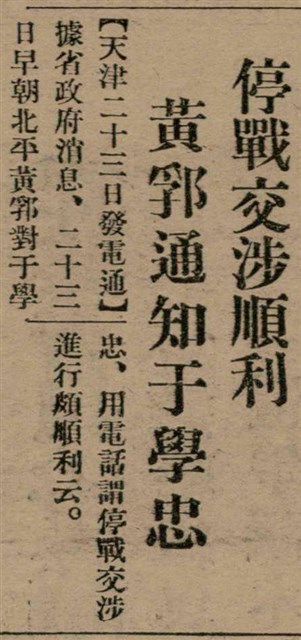 停戰交涉順利
黃郛通知于學忠
【天津二十三日發電通】
據省政府消息、二十三
日早朝北平黃郛對于學
忠、用電話謂停戰交涉
進行頗順利云。